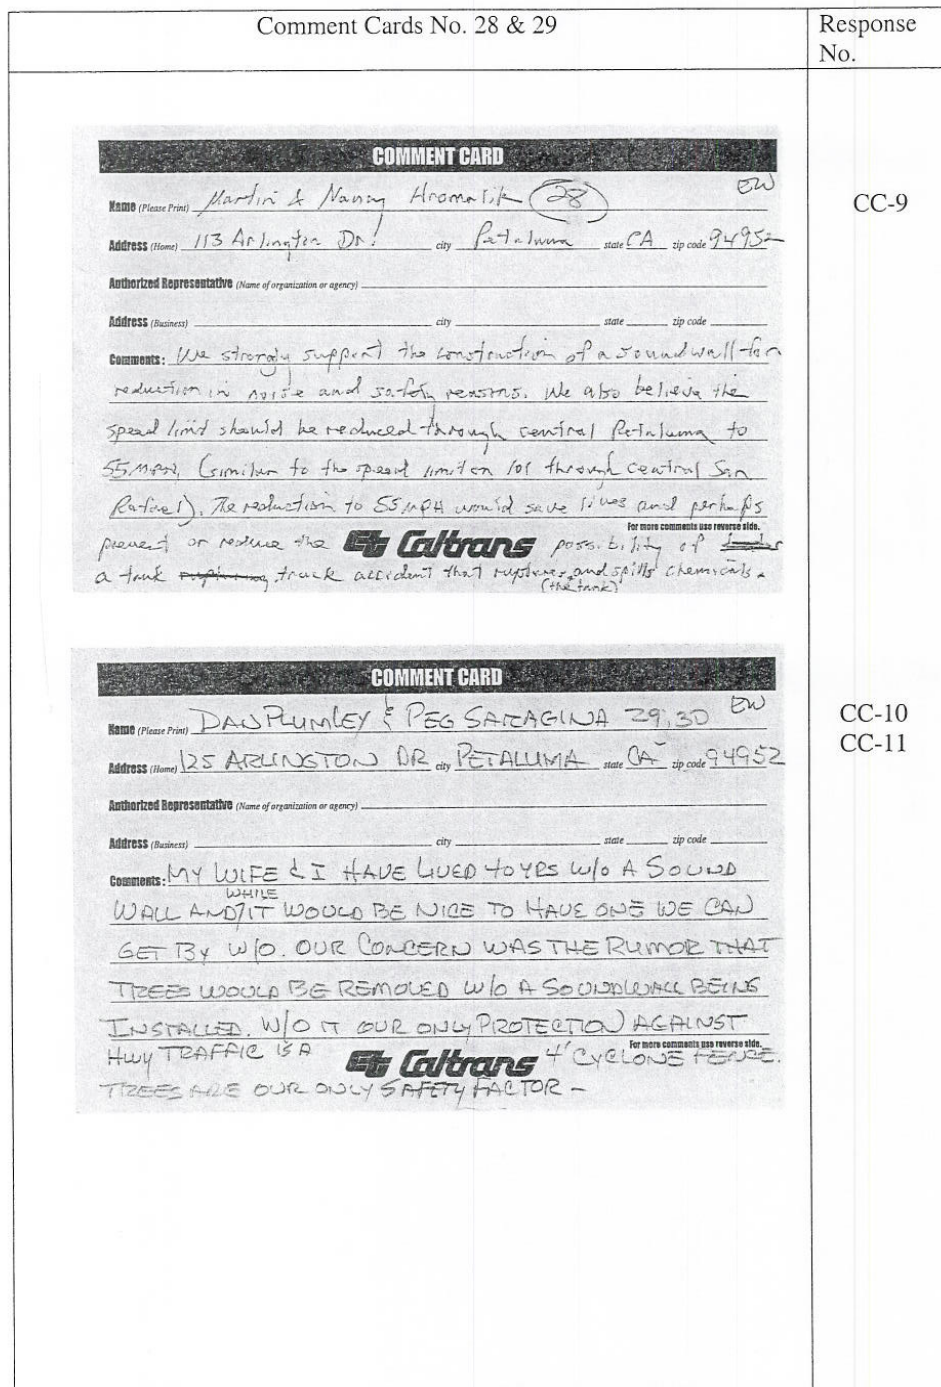 Comment Cards No. 28 & 29
Response
No.
COMMENT CARD
EW
Name (Please Print) Martin & Nancy Hromalik 28
Address (Home) 113 Arlington Dr. city Petaluma state CA zip code 94952
Authorized Representative (Name of organization or agency)
Address (Business) city state zip code
Comments: We strongly support the construction of a soundwall for
reduction in noise and safety reasons. We also believe the
speed limit should be reduced through central Petaluma to
55 MPH, (similar to the speed limit on 101 through central San
Rafael). The reduction to 55 MPH would save lives and perhaps
For more comments use reverse side.
prevent or reduce the Caltrans possibility of
a tank truck accident that ruptures and spills chemicals.
(the tank)
CC-9
COMMENT CARD
Name (Please Print) DAN PLUMLEY & PEG SARAGINA 29,30 EW
Address (Home) 125 ARLINGTON DR city PETALUMA state CA zip code 94952
Authorized Representative (Name of organization or agency)
Address (Business) city state zip code
Comments: MY WIFE & I HAVE LIVED 40 YRS W/O A SOUND
WHILE
WALL AND/IT WOULD BE NICE TO HAVE ONE WE CAN
GET BY W/O. OUR CONCERN WAS THE RUMOR THAT
TREES WOULD BE REMOVED W/O A SOUNDWALL BEING
INSTALLED. W/O IT OUR ONLY PROTECTION AGAINST
For more comments use reverse side.
HWY TRAFFIC IS A Caltrans 4' CYCLONE FENCE.
TREES ARE OUR ONLY SAFETY FACTOR -
CC-10
CC-11